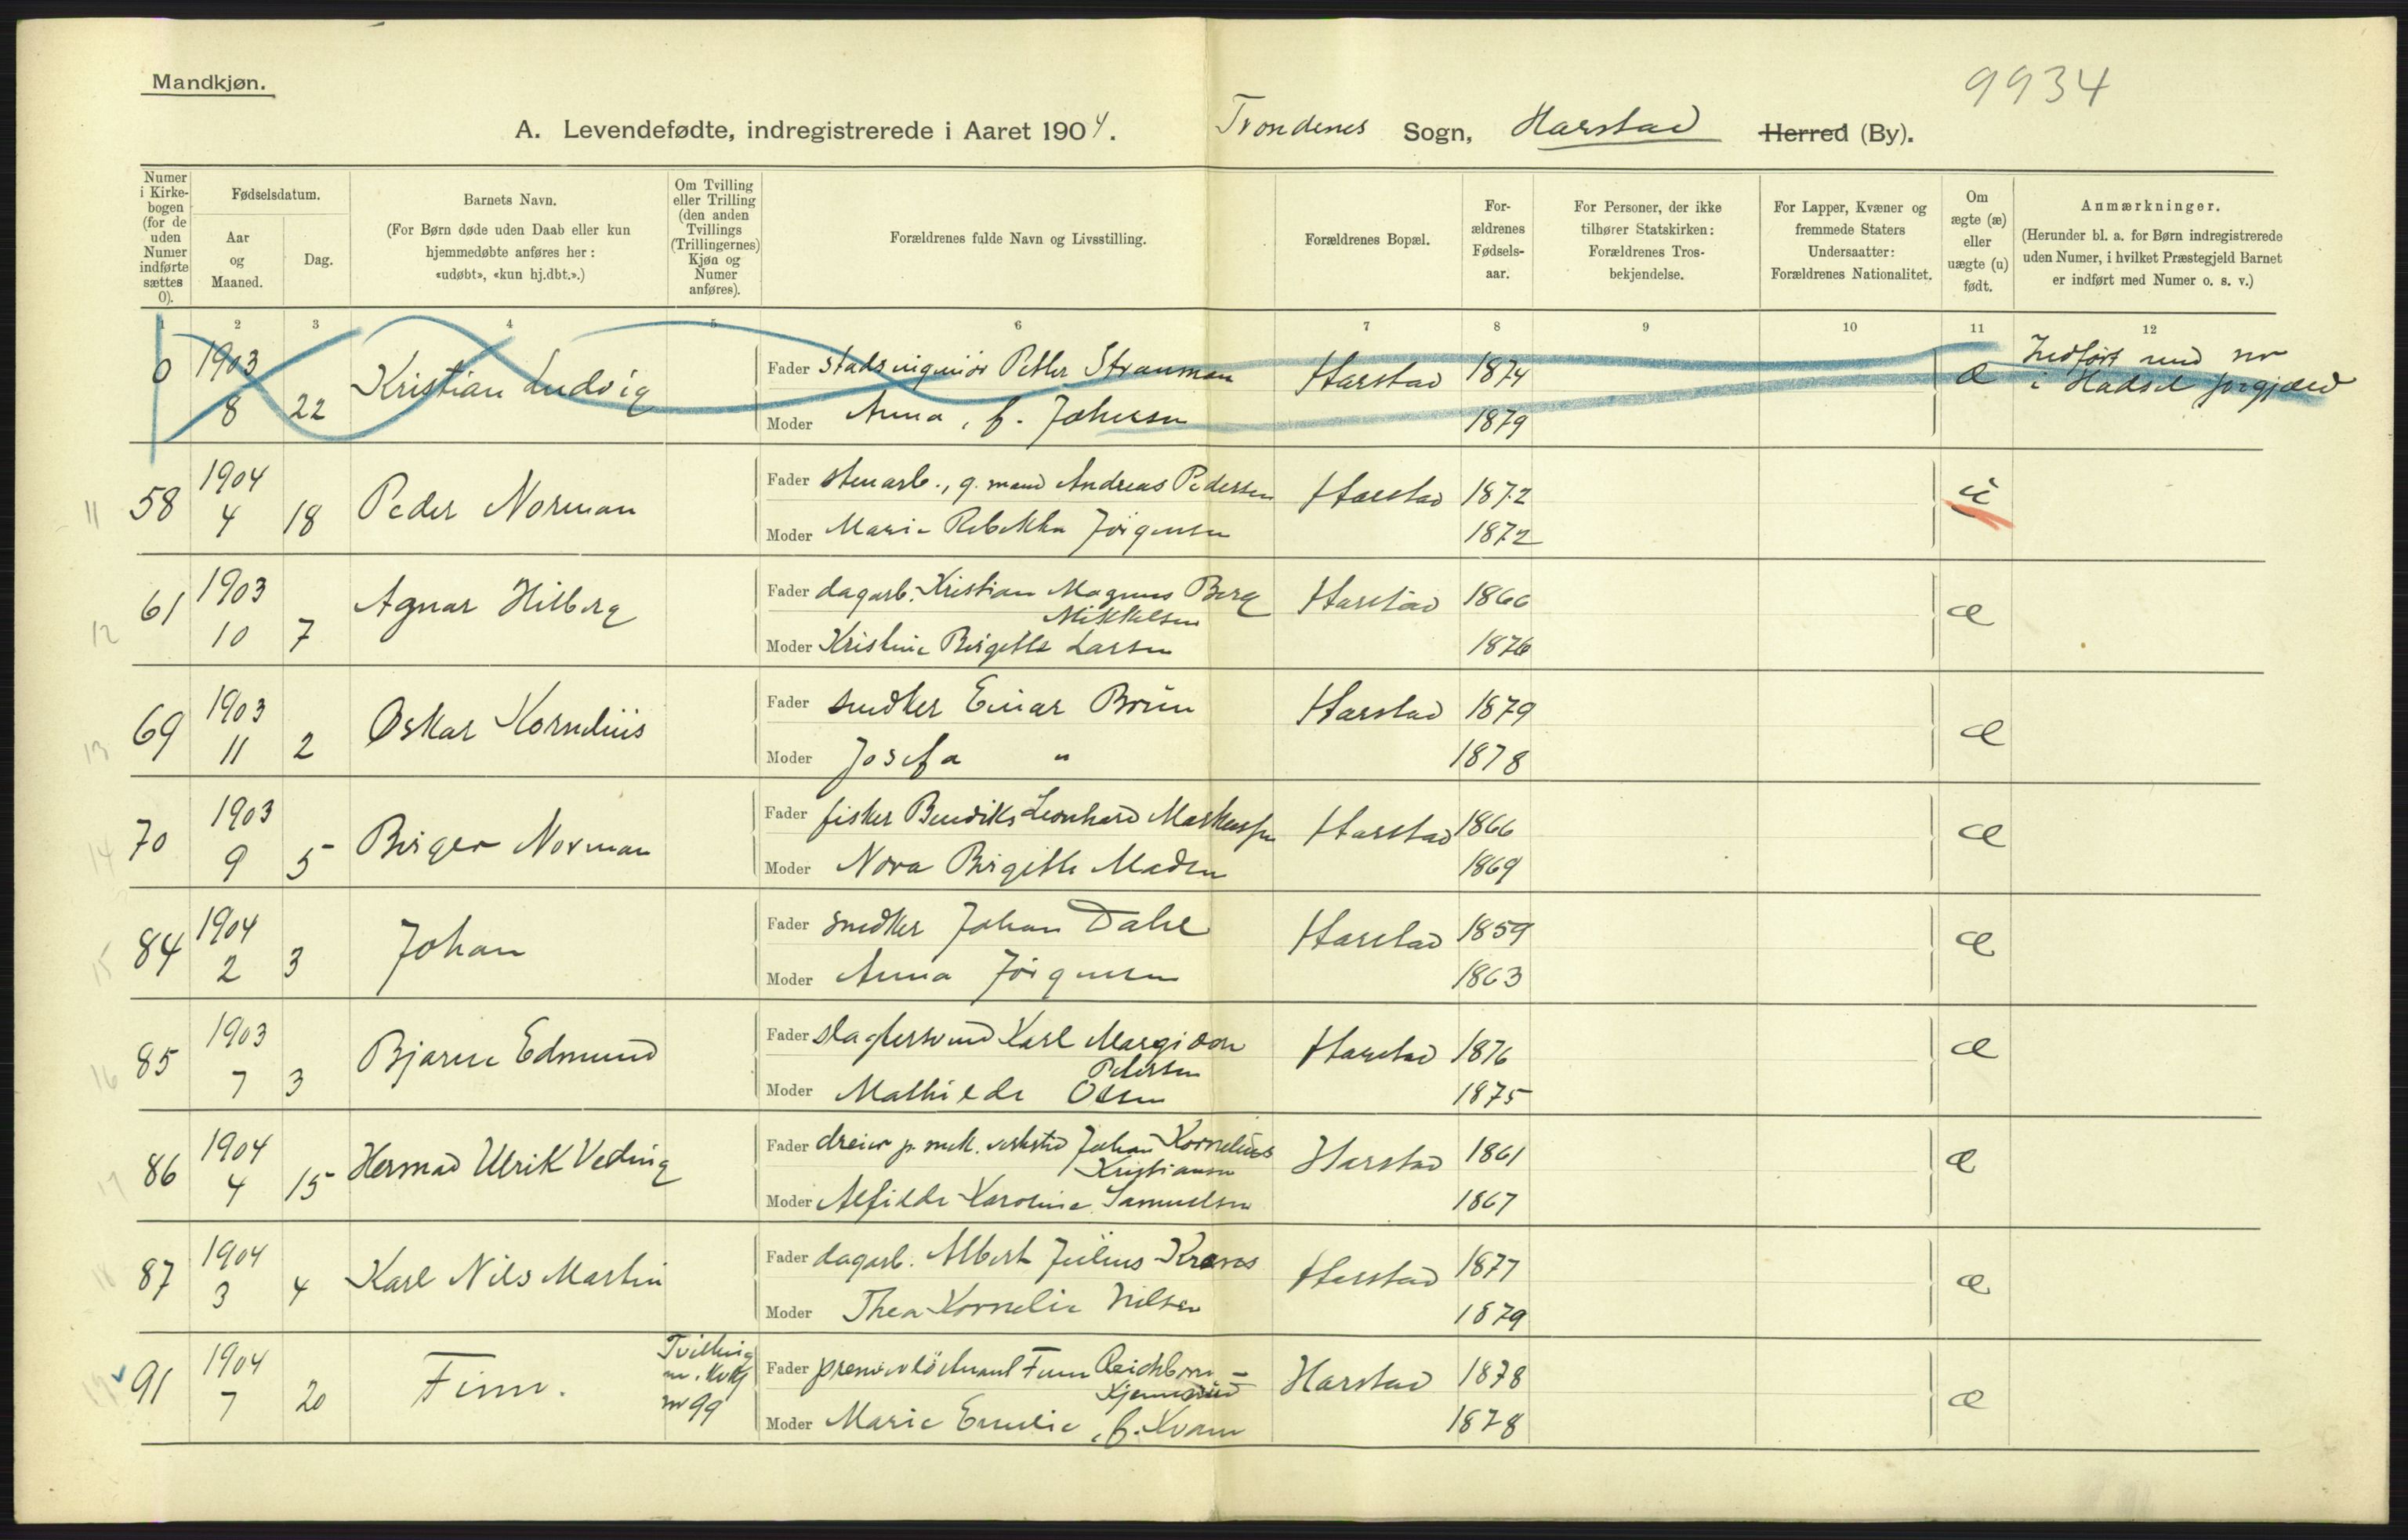 Mandkjøn.
9934
A. Levendefødte, indregistrerede i Aaret 1904. Trondenes Sogn, Harstad Herred (By).
Numer i Kirke-bogen (for de uden Numer indførte sættes 0).
Fødselsdatum.
Aar og Maaned.
Dag.
Barnets Navn.
(For Børn døde uden Daab eller kun hjemmedøbte anføres her: «udøbt», «kun hj.dbt.».)
Om Tvilling eller Trilling (den anden Tvillings (Trillingernes) Kjøn og Numer anføres).
Forældrenes fulde Navn og Livsstilling.
Forældrenes Bopæl.
For-ældrenes Fødsels-aar.
For Personer, der ikke tilhører Statskirken: Forældrenes Tros-bekjendelse.
For Lapper, Kvæner og fremmede Staters Undersaatter: Forældrenes Nationalitet.
Om ægte (æ) eller uægte (u) født.
Anmærkninger.
(Herunder bl. a. for Børn indregistrerede uden Numer, i hvilket Præstegjeld Barnet er indført med Numer o. s. v.)
1 2 3 4 5 6 7 8 9 10 11 12
0 1903 8 22 Kristian Ludvig
Fader stadsingeniör Petter Strauman Harstad 1874 æ Indført med nr i Hadsel prgjæld
Moder Anna, f. Johnsen 1879
11 58 1904 4 18 Peder Norman
Fader stenarb., g. mand Andreas Pedersen Harstad 1872 u
Moder Marie Rebekka Jörgensen 1872
12 61 1903 10 7 Agnar Hilberg
Fader dagarb. Kristian Magnus Berg Mikkelsen Harstad 1866 æ
Moder Kristine Birgitte Larsen 1876
13 69 1903 11 2 Oskar Kornelius
Fader snedker Einar Brun Harstad 1879 æ
Moder Josefa " 1878
14 70 1903 9 5 Birger Norman
Fader fisker Bendiks Leonhard Markussen Harstad 1866 æ
Moder Nora Birgitte Madsen 1869
15 84 1904 2 3 Johan
Fader snedker Johan Dahl Harstad 1859 æ
Moder Anna Jörgensen 1863
16 85 1903 7 3 Bjarne Edmund
Fader slagtersvend Karl Margido Pedersen Harstad 1876 æ
Moder Mathilde Olsen 1875
17 86 1904 4 15 Hermod Ulrik Veding
Fader dreier p. mek. verksted Johan Kornelius Kristiansen Harstad 1861 æ
Moder Alfilde Karoline Samuelsen 1867
18 87 1904 3 4 Karl Nils Martin
Fader dagarb. Albert Julius Kræmer Harstad 1877 æ
Moder Thea Kornelie Nilsen 1879
19 91 1904 7 20 Finn. Tvilling m. Kvkj nr 99
Fader premierlöitnant Finn Reichborn-Kjennerud Harstad 1878 æ
Moder Marie Emilie, f. Kvam 1878